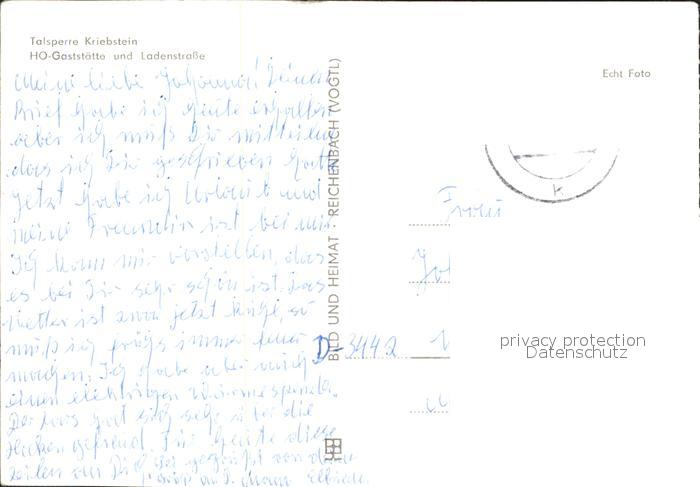 Talsperre Kriebstein
HO-Gaststätte und Ladenstraße
Echt Foto
Meine liebe Johanna! Deinen
Brief habe ich heute erhalten
aber ich muß Dir mitteilen
das ich Dir geschrieben hatte
jetzt habe ich Urlaub und
meine Freundin ist bei mir.
Ich kann mir vorstellen, das
es bei Dir sehr schön ist. das
Wetter ist zwar jetzt kühl, so
muß ich früh immer feuer
machen. Ich habe aber auch
einen elektrigen Wärmespender.
Der hat sich sehr über die
gefreud. Für heute diese
zeilen an Dich gegrüßt von deiner
Elfriede
BILD UND HEIMAT REICHENBACH (VOGTL)
Frau
D-3442
privacy protection
Datenschutz